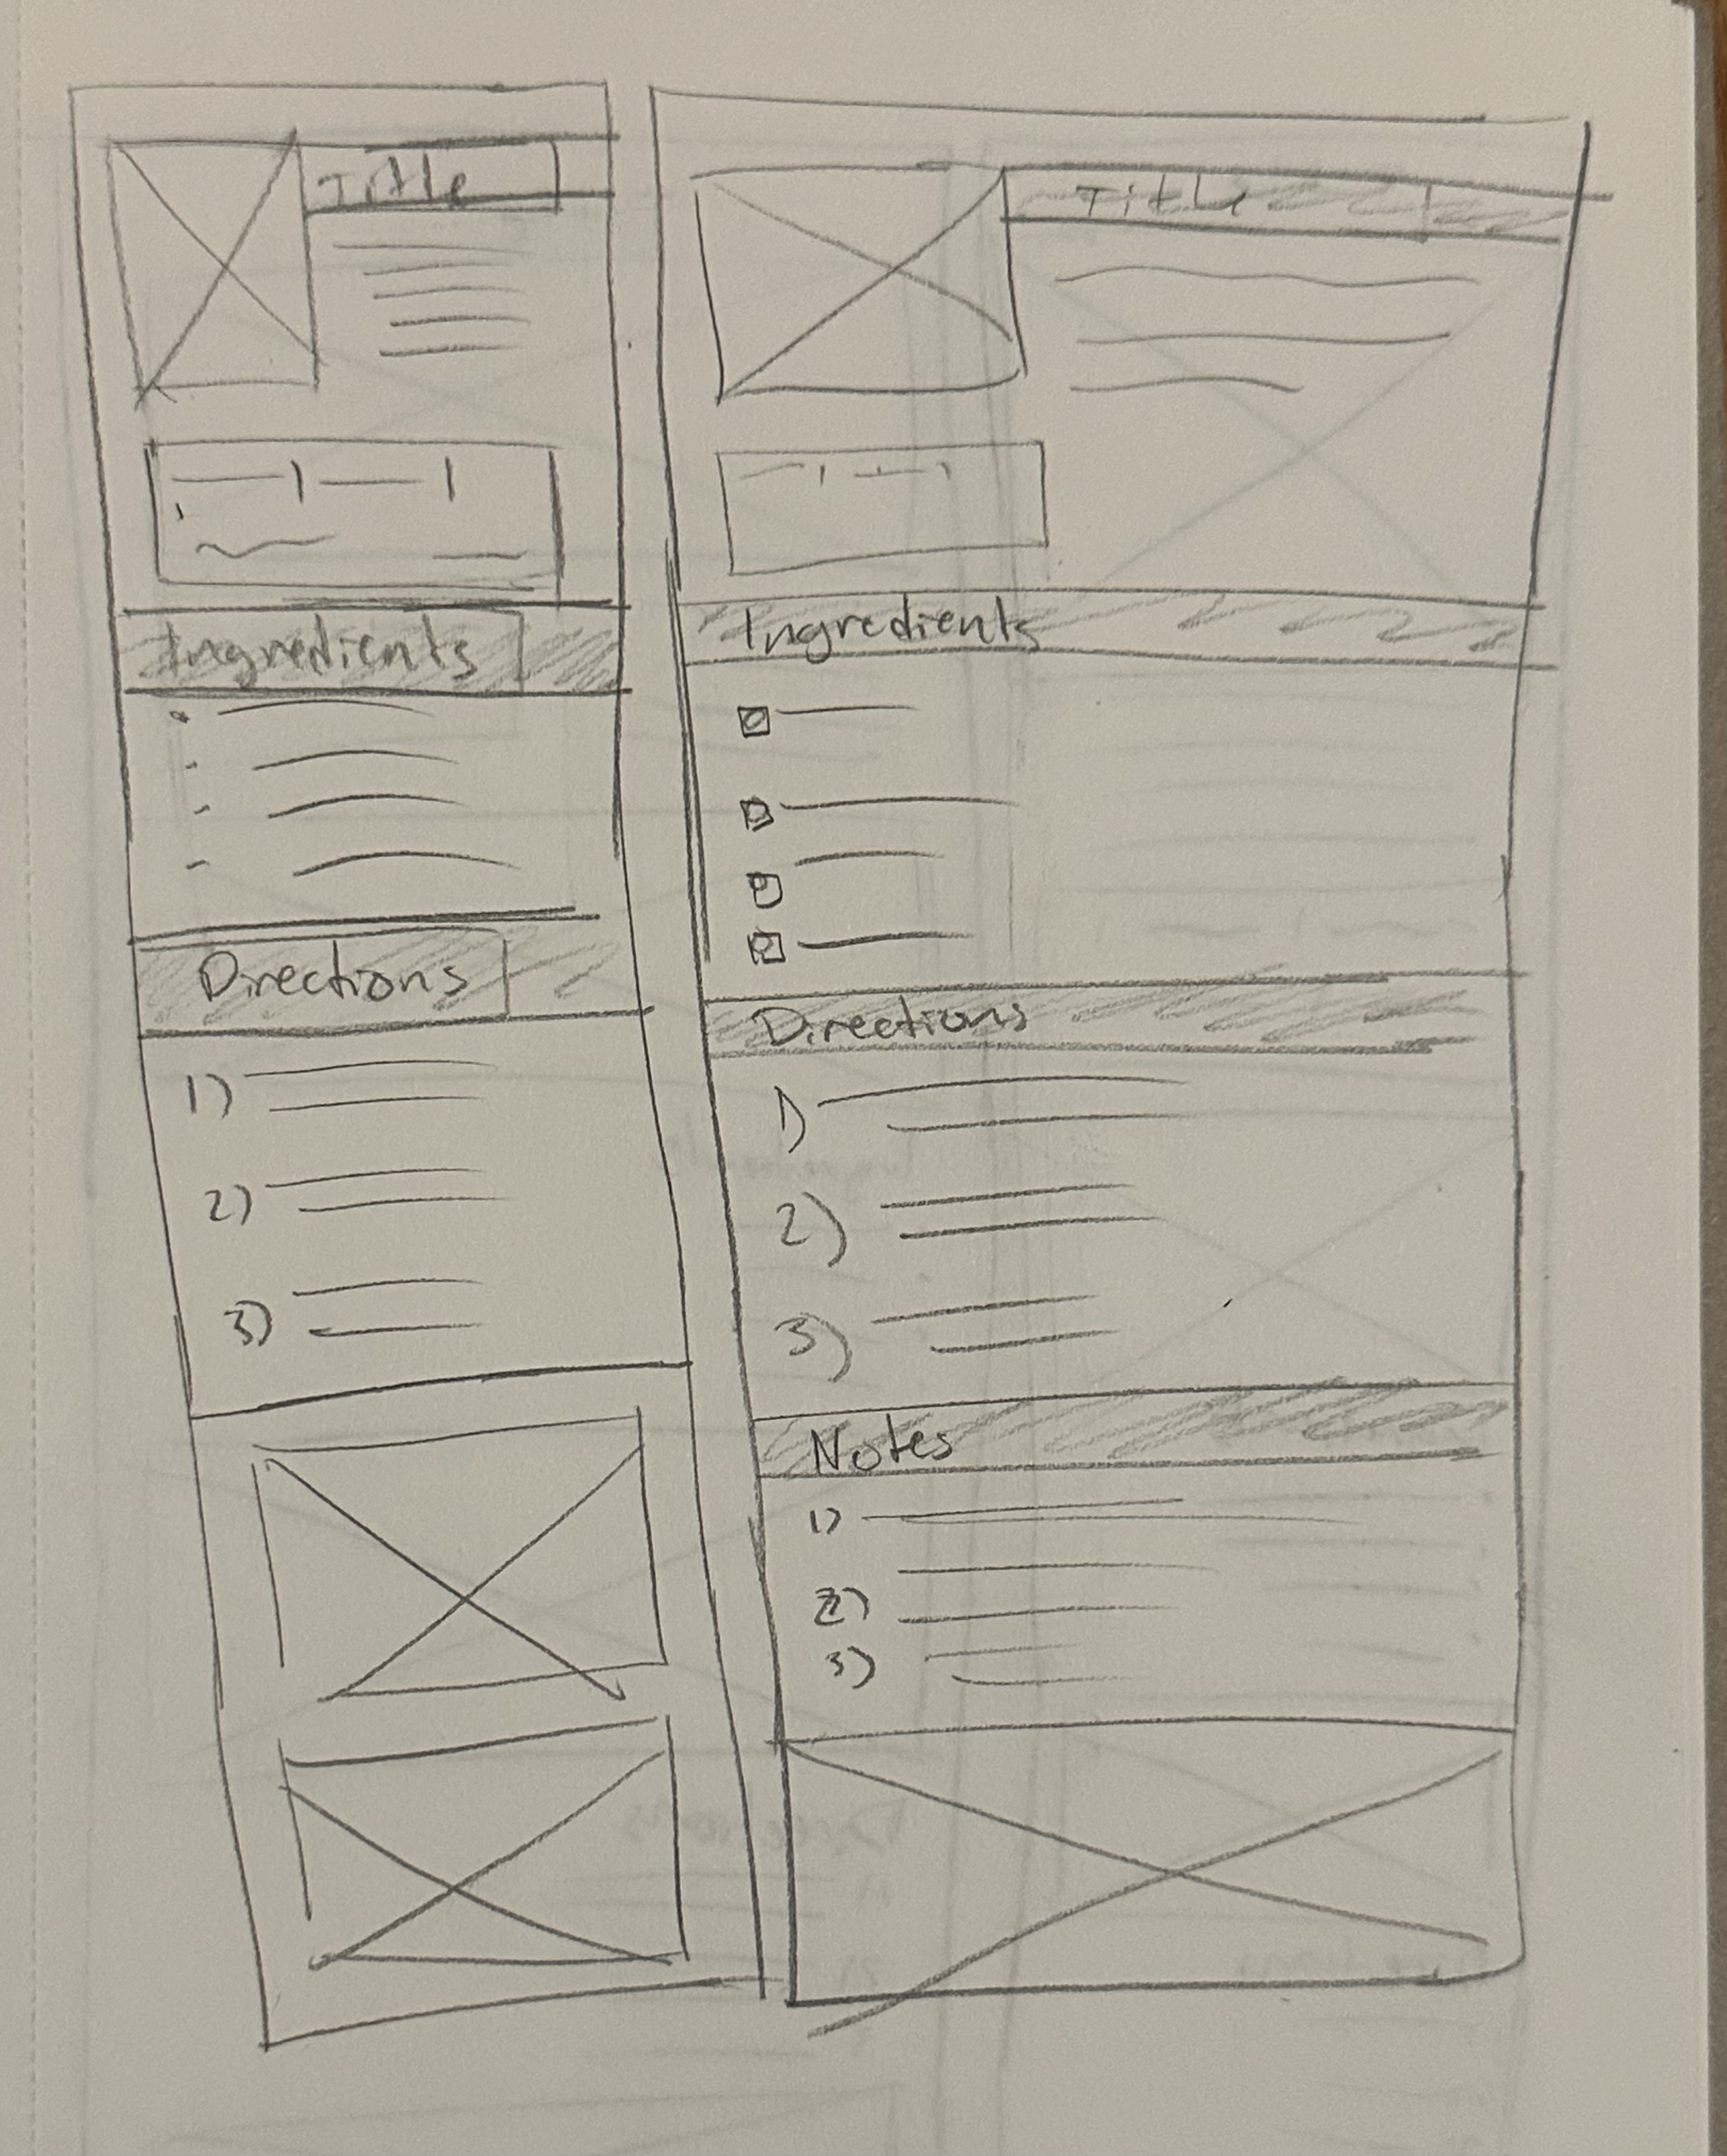 Title
Ingredients
Directions
1)
2)
3)
Title
Ingredients
Directions
1)
2)
3)
Notes
1)
2)
3)